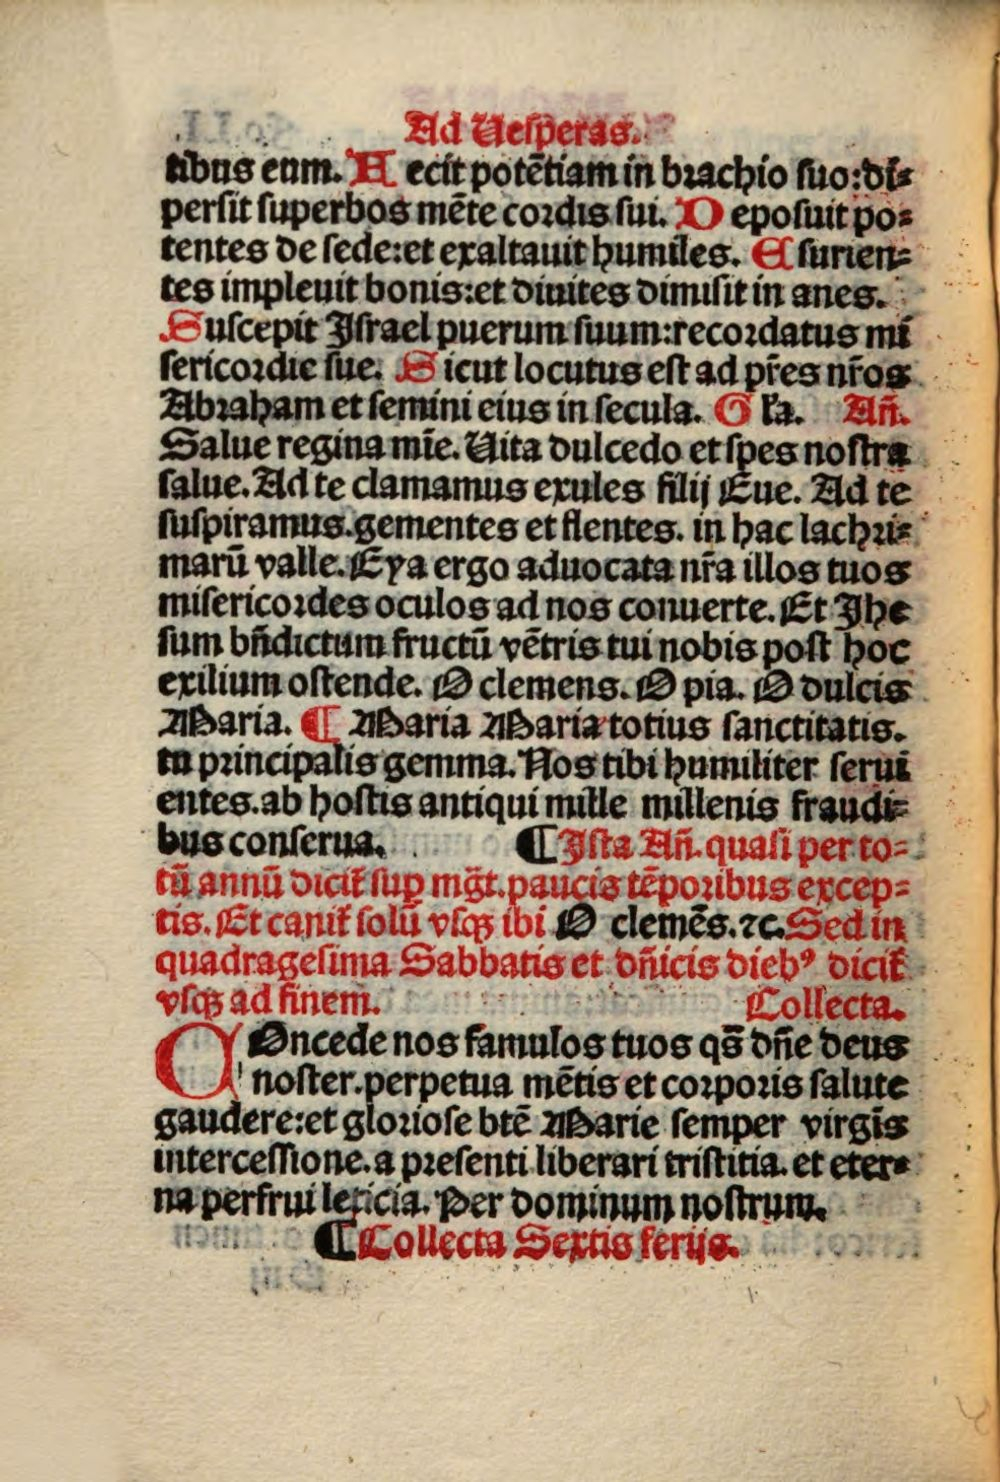 Ad Uesperas.
tibus eum. Fecit potētiam in brachio suo:di⸗
persit superbos mēte cordis sui. Deposuit po⸗
tentes de sede:et exaltauit humiles. Esurien⸗
tes impleuit bonis:et diuites dimisit in anes.
Suscepit Israel puerum suum:recordatus mi
sericordie sue. Sicut locutus est ad pr̄es nr̄os
Abraham et semini eius in secula. Gl̄a. Añ.
Salue regina mīe. Uita dulcedo et spes nostra
salue. Ad te clamamus exules filij Eue. Ad te
suspiramus.gementes et flentes. in hac lachri⸗
marū valle. Eya ergo aduocata nr̄a illos tuos
misericordes oculos ad nos conuerte. Et Jhe
sum bn̄dictum fructū vētris tui nobis post hoc
exilium ostende. O clemens. O pia. O dulcis
Maria. ¶ Maria Maria totius sanctitatis.
tu principalis gemma. Nos tibi humiliter serui
entes.ab hostis antiqui mille millenis fraudi⸗
bus conserua. ¶ Ista Añ. quasi per to⸗
tū annū dicit᷑ sup mḡt. paucis tēporibus excep⸗
tis. Et canit᷑ solū vsqꝫ ibi O clemēs.⁊c. Sed in
quadragesima Sabbatis et dn̄icis diebꝰ dicit᷑
vsqꝫ ad finem. Collecta.
COncede nos famulos tuos qs̄ dn̄e deus
noster.perpetua mētis et corporis salute
gaudere:et gloriose btē Marie semper virgīs
intercessione.a presenti liberari tristitia.et eter⸗
na perfrui leticia. Per dominum nostrum.
¶ Collecta Sextis ferijs.